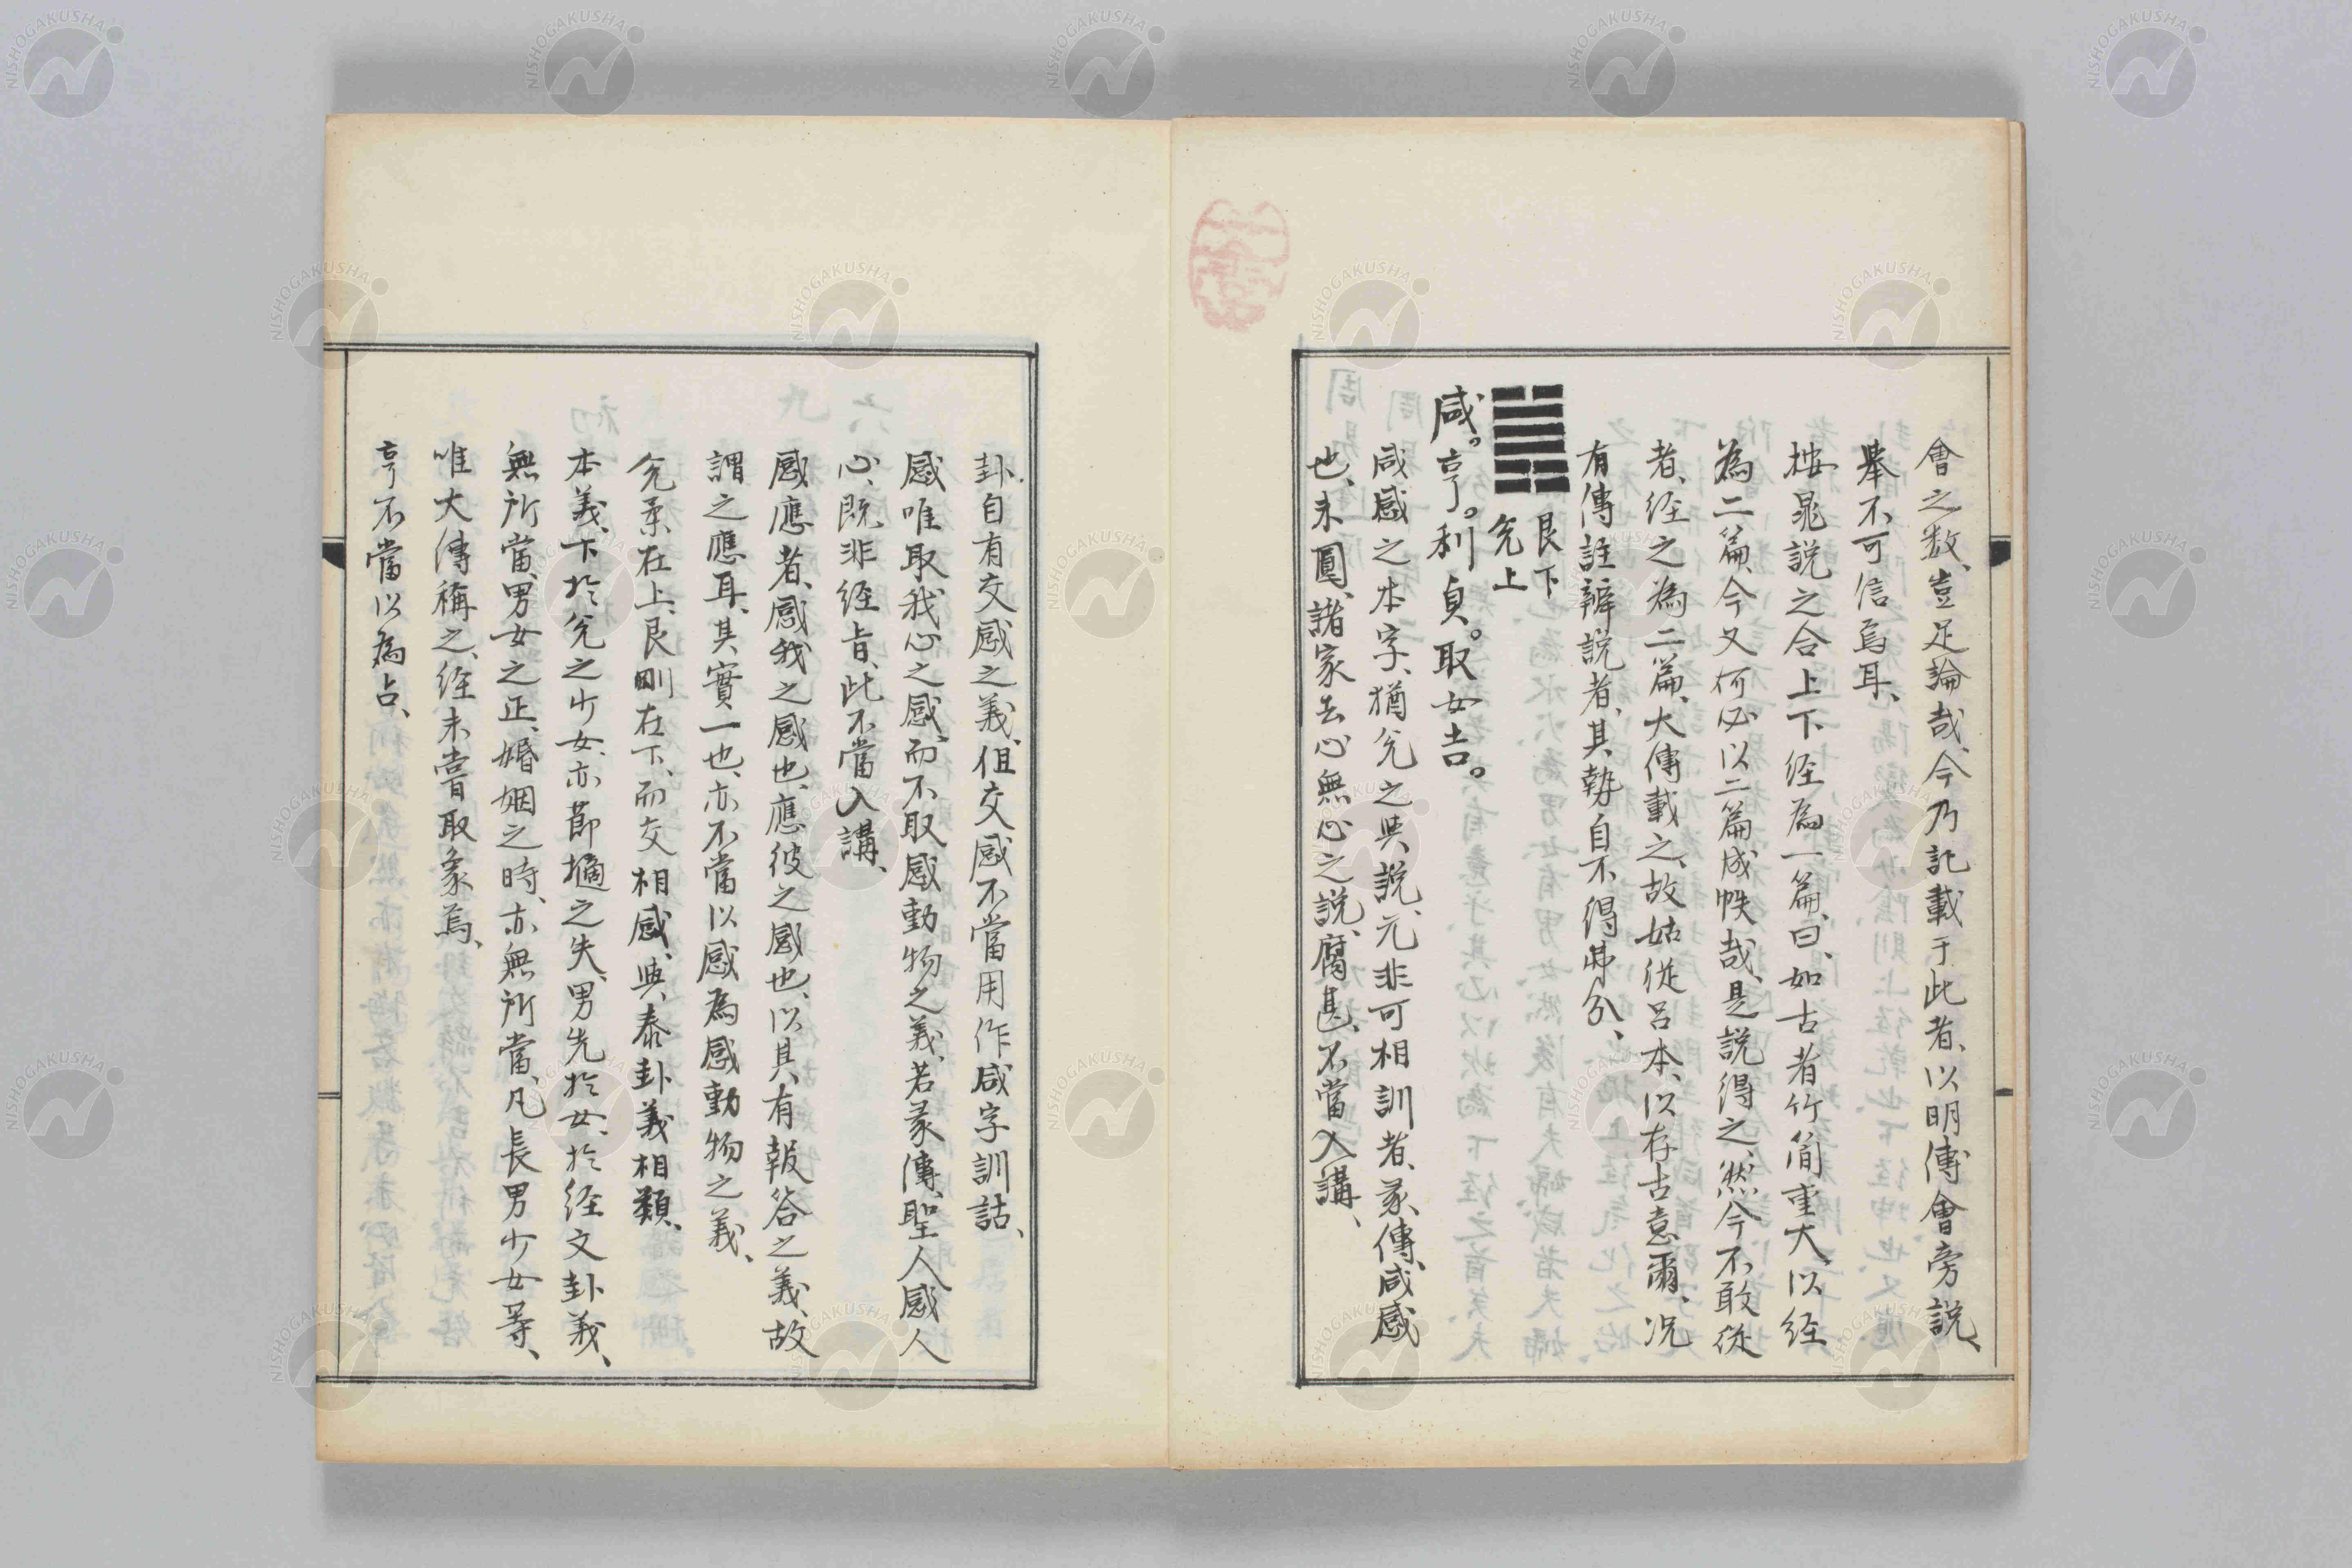 會之数、豈足論哉、今乃記載于此者、以明傅會旁説、
舉不可信焉耳、
按晁説之合上下経為一篇、曰、如古者竹簡重大、以経
為二篇、今又何必以二篇成帙哉、是説得之、然今不敢従
者、経之為二篇、大傳載之、故姑従呂本、以存古意爾、况
有傳註辨説者、其勢自不得弗分、
艮下
兌上
咸。亨。利貞。取女吉。
咸感之本字、猶兌之與説、元非可相訓者、彖傳、咸感
也、未圓、諸家去心無心之説、腐甚、不當入講、
卦自有交感之義、但交感不當用作咸字訓詁、
感唯取我心之感、而不取感動物之義、若彖傳、聖人感人
心、既非経旨、此不當入講、
感應者、感我之感也、應彼之感也、以其有報答之義、故
謂之應耳、其實一也、亦不當以感為感動物之義、
兌柔在上、艮剛在下、而交相感、與泰卦義相類、
本義、下於兌之少女、亦節擿之失、男先於女、於経文卦義、
無所當、男女之正、婚姻之時、亦無所當、凡長男少女等、
唯大傳稱之、経未嘗取象焉、
亨不當以為占、
NISHOGAKUSHA